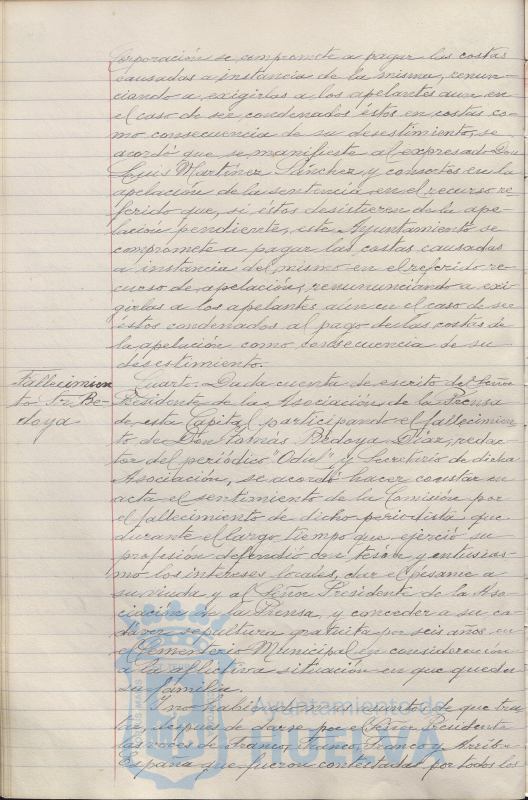 Corporación se compromete a pagar las costas
causadas a instancia de la misma, renun-
ciando a exigirlas a los apelantes aun en
el caso de ser condenados éstos en costas co-
mo consecuencia de su desestimiento, se
acordó que se manifieste al expresado Don
Luis Martínez Sánchez y consortes en la
apelación de la sentencia en el recurso re-
ferido que, si éstos desistieren de la ape-
lación pendiente, este Ayuntamiento se
compromete a pagar las costas causadas
a instancia del mismo en el referido re-
curso de apelación, renununciando a exi-
girlas a los apelantes aún en el caso de ser
éstos condenados al pago de las costas de
la apelación como consecuencia de su
desestimiento.
Fallecimien
to Sr. Be-
doya
Cuarto. Dada cuenta de escrito del Señor
Presidente de la Asociación de la Prensa
de esta Capital participando el fallecimien-
to de Don Tomás Bedoya Díaz, redac-
tor del periódico "Odiel" y Secretario de dicha
Asociación, se acordó hacer constar en
acta el sentimiento de la Comisión por
el fallecimiento de dicho periodista que
durante el largo tiempo que ejerció su
profesión defendió con tesón y entusias-
mo los intereses locales, dar el pésame a
su viuda y al Señor Presidente de la Aso-
ciación de la Prensa, y conceder a su ca-
dáver sepultura gratuita por seis años en
el Cementerio Municipal en consideración
a la aflictiva situación en que queda
su familia.
Y no habiendo más asuntos de que tra-
tar, después de darse por el Señor Presidente
las voces de Franco, Franco, Franco y Arriba
España que fueron contestadas por todos los
Ayuntamiento de
HUELVA